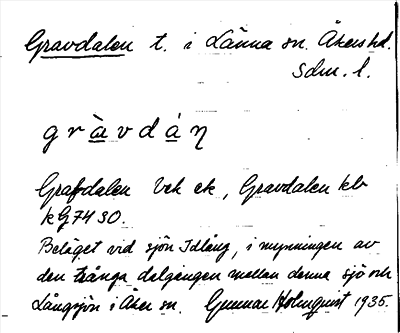 Gravdalen t. i Länna sn. Åkers hd.
Sdm. l.
gràvdáη
Grafdalen Vck ek, Gravdalen kb
kG7430.
Beläget vid sjön Idlång, i mynningen av
den trånga dalgången mellan denna sjö och
Långsjön i Åker sn. Gunnar Holmquist 1935.